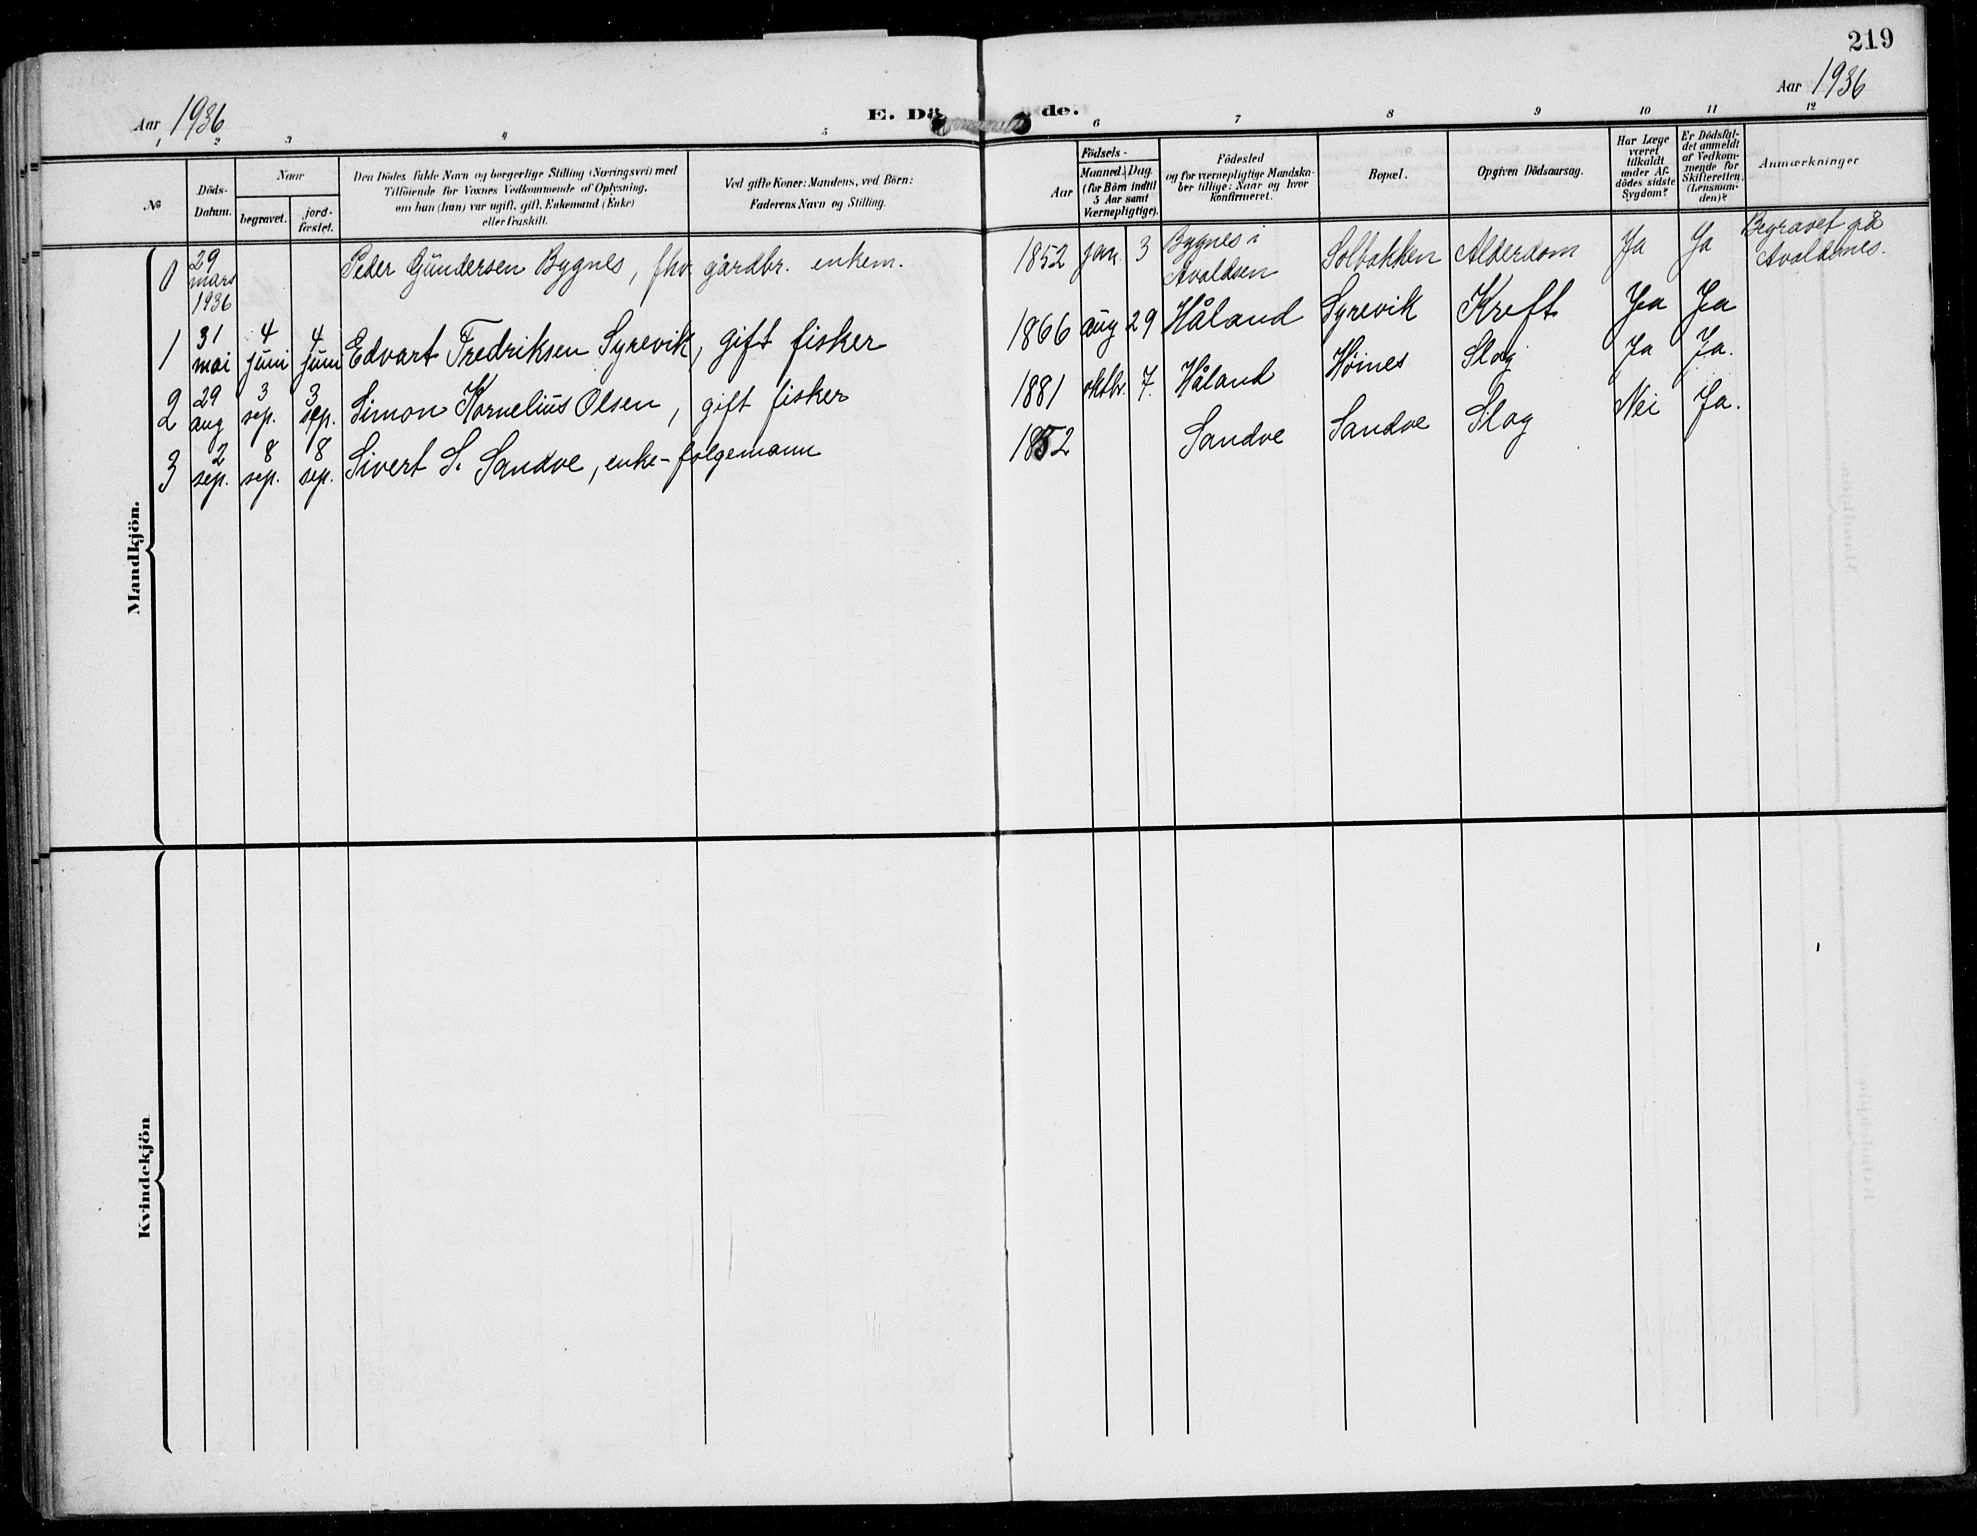 219
Aar 1936
Aar 1936
E. Dö de.
1 2 3 4 5 6 7 8 9 10 11 12
№
Döds-
Datum.
Naar
begravet.
jord-
fæstet.
Den Dödes fulde Navn og borgerlige Stilling (Næringsvei) med
Tilföiende for Voxnes Vedkommende af Oplysning,
om han (hun) var ugift, gift, Enkemand (Enke)
eller fraskilt.
Ved gifte Koner: Mandens, ved Börn:
Faderens Navn og Stilling.
Födsels-
Aar
Maaned. Dag.
(for Börn indtil
5 Aar samt
Værnepligtige).
Födested
og for værnepligtige Mandska-
ber tillige: Naar og hvor
konfirmeret.
Bopæl.
Opgiven Dödsaarsag.
Har Læge
været
tilkaldt
under Af-
dödes sidste
Sygdom?
Er Dödsfal-
det anmeldt
af Vedkom-
mende for
Skifteretten,
(Lensman-
den)?
Anmærkninger
Mandkjön.
0 29 mars 1936 Peder Gündersen Bygnes, fhv gårdbr. enkem. 1852 jan. 3 Bygnes i Avaldsen Solbakken Alderdom Ja Ja Begravet på Avaldsnes.
1 31 mai 4 juni 4 juni Edvart Fredriksen Syrevik, gift fisker 1866 aug 29 Håland Syrevik Kreft Ja Ja
2 29 aug 3 sep. 3 sep. Simon Kornelius Olsen, gift fisker 1881 oktbr. 7. Håland Høines Slag Ja Ja.
3 2 sep. 8 sep. 8 sep. Sivert S. Sandve, enke-folgemann 1852 Sandve Sandve Slag Nei Ja.
Kvindekjön